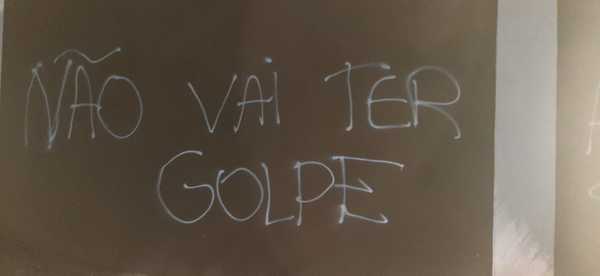 NÃO VAI TER
GOLPE